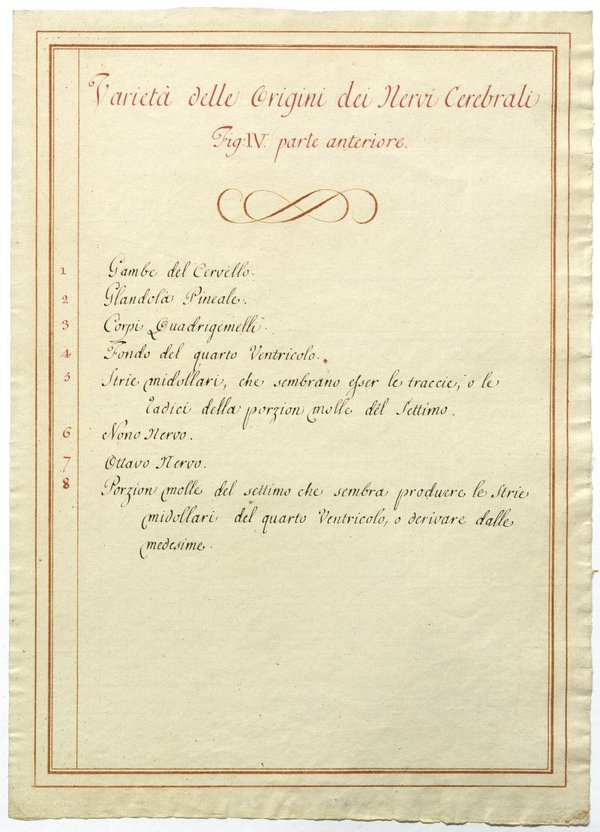 Varietà delle Origini dei Nervi Cerebrali
Fig: IV. parte anteriore.
1 Gambe del Cervello.
2 Glandola Pineale.
3 Corpi Quadrigemelli.
4 Fondo del quarto Ventricolo.
5 Strie midollari, che sembrano esser le traccie, o le
radici della porzion molle del Settimo.
6 Nono Nervo.
7 Ottavo Nervo.
8 Porzion molle del settimo che sembra produrre le Strie
midollari del quarto Ventricolo, o derivare dalle
medesime.